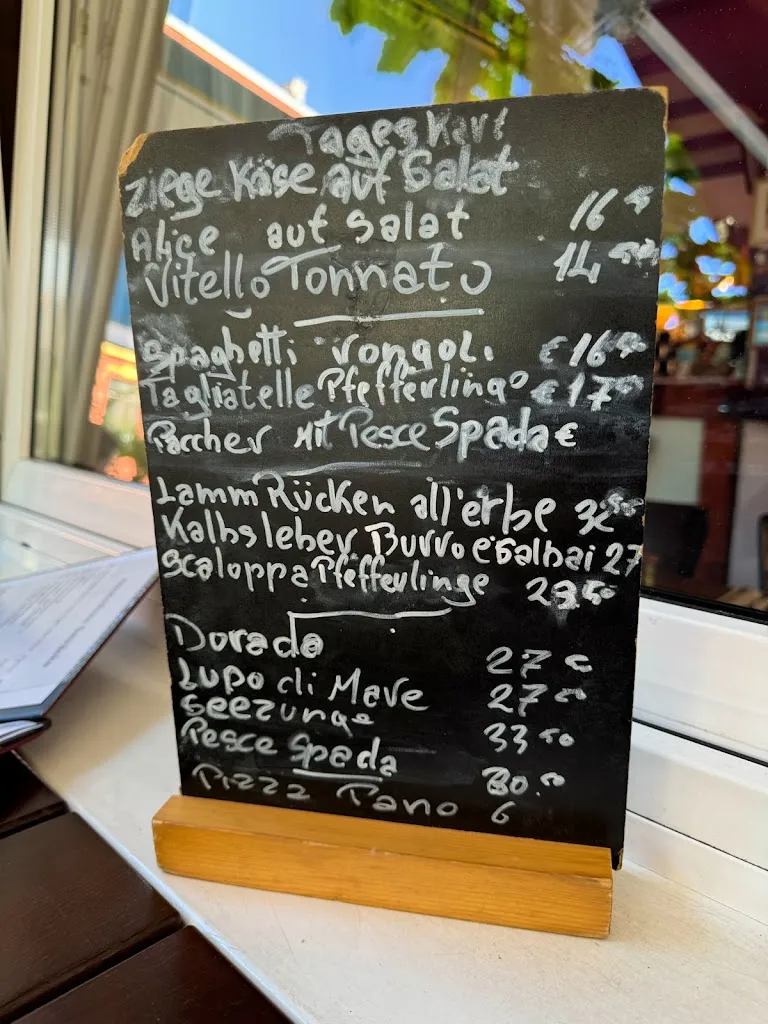 Tages Kart
Ziege Käse auf Salat
Alice auf Salat 16
Vitello Tonnato 14
Spaghetti Vongoli €16
Tagliatelle Pfefferlinge €17
Paccher Mit Pesce Spada €
Lamm Rücken all'erbe
Kalbsleber Burro e Salbai 27
Scaloppa Pfefferlinge
Dorada 27
Lupo di Mare 27
Seezunge 33
Pesce Spada 30
Pizza Pano 6